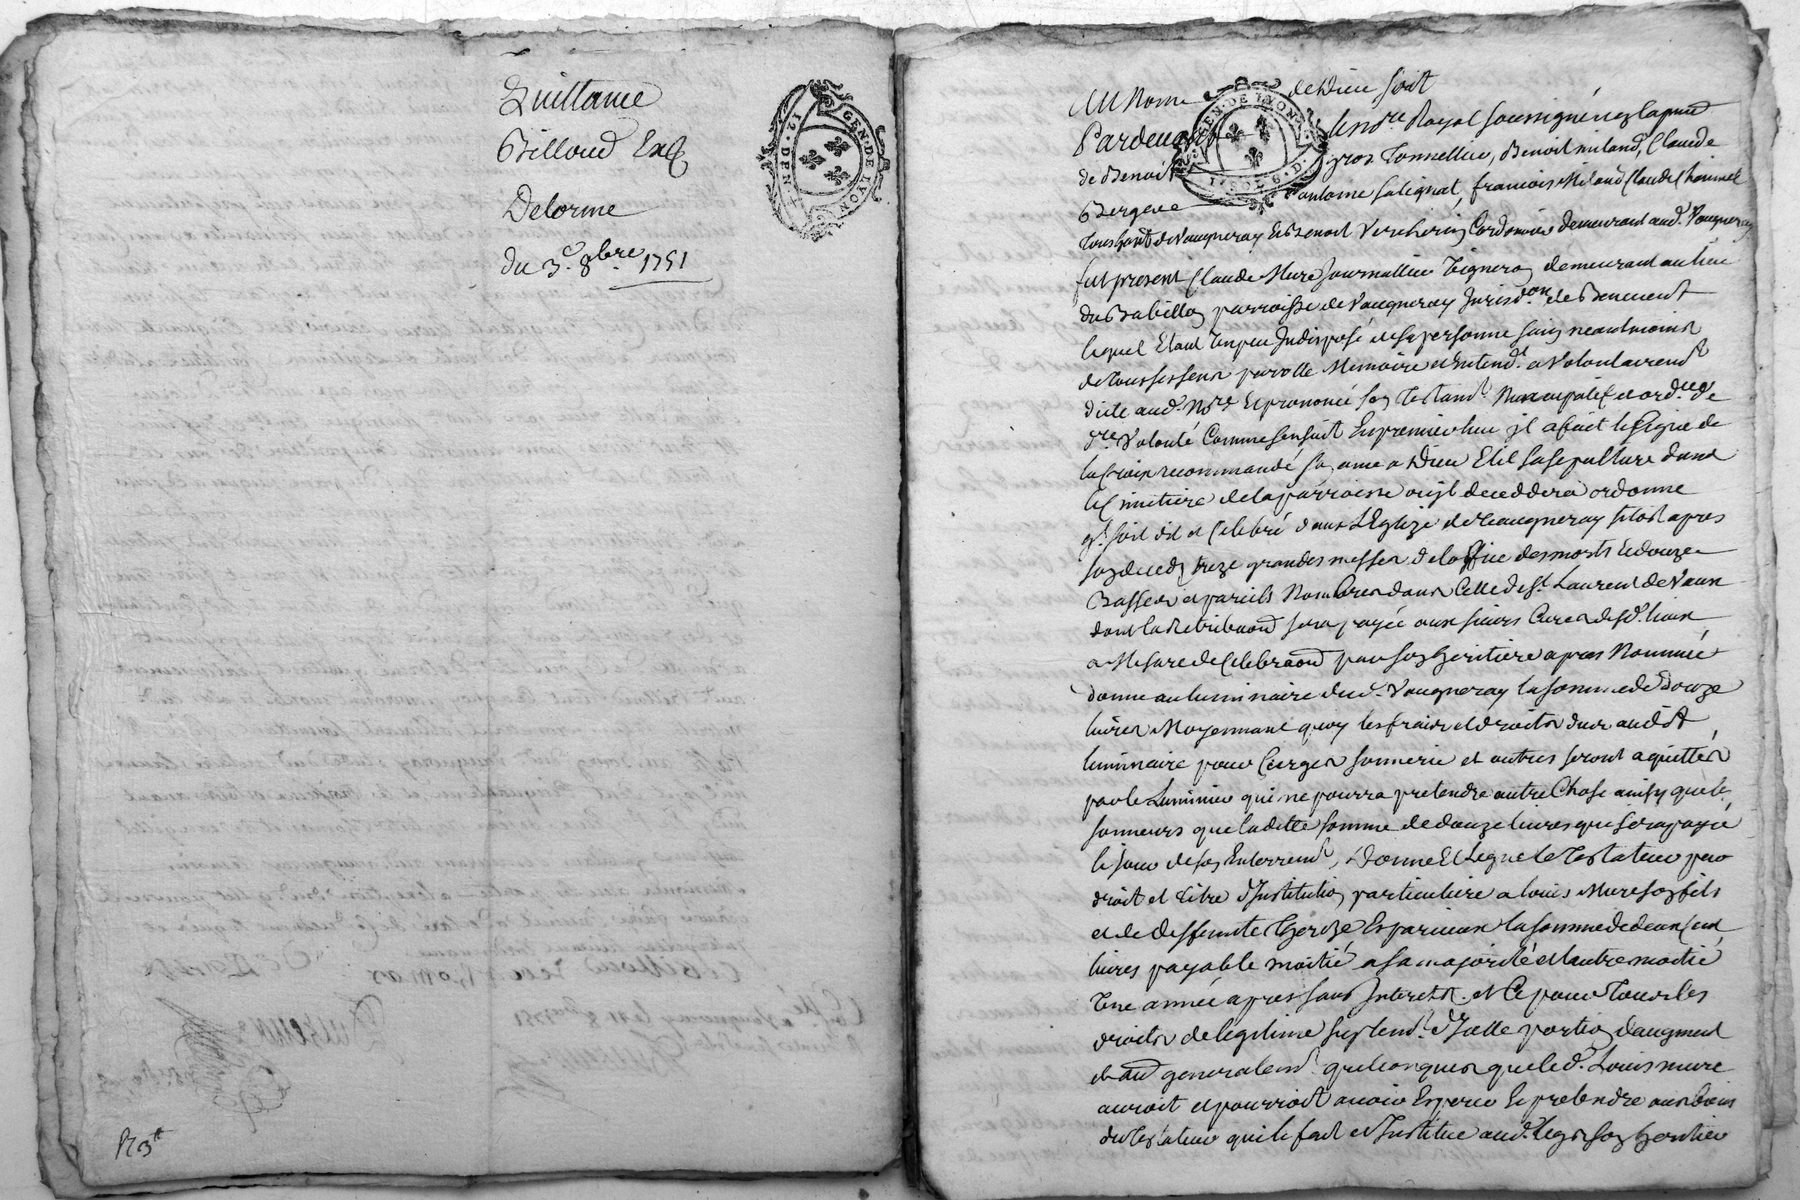 Quittance
Billoud Et
Delorme
du 3e. 8bre. 1751
GEN·DE·LYON
R 3tt
Au Nom de Dieu soit
GEN·DE LYON
Pardevant le nore. Royal soussigné
de Benoit gros Tonnellier, Benoit miland, Claude
Bergere antoine salignat, francois Miland Claude
tous hants de Vaugneray Et Benoit Vercherin Cordonnier demeurant aud. Vaugneray
fut present Claude Mure Journallier Vigneron demeurant au lieu
du Babillon parroisse de Vaugneray Jurisdon. de Benevent
lequel Etant un peu Indisposé de sa personne sain neantmoins
de tous ses sens parolle Memoire et Entendt. a Volontairemt
dicté aud. Nore. Et prononcé son testamt. Nuncupatif et ordre. de
dre. Volonté Comme sensuit En premier lieu il a fait le signe de
la Croix recommandé son ame a Dieu Elit sa sepulture dans
le Cimitiere de la parroisse ou il deceddera ordonne
ql. soit dit et Celebré dans L'Eglize de Vaugneray sitost apres
son deceds treze grandes messes de loffice des morts Et douze
Basses et pareils Nombres dans Celle de St. Laurent de Vaux
dont la Retribuaon sera payée aux sieurs Cures desd. lieux
a Mesure de Celebraon par son heritiere apres Nommée
donne au luminaire dud. Vaugneray la somme de Douze
livres Moyennant quoy les frais et droits dus audit
luminaire pour Cierges sonnerie et autres seront aquittés
par le Luminier qui ne pourra pretendre autre Chose ainsy que les
sonneurs que la ditte somme de douze livres qui sera payée
le jour de son Enterremt, Donne Et Legue le Testateur par
droit et titre d'Institution particuliere a louis Mure son fils
et de deffunte Thereze Esparcieux la somme de deux Cent
livres payable moitié a sa majorité et lautre moitié
Une année apres sans Interets. et Ce pour Tous les
droits de legitime suplemt. d'Icelle portion d'augment
et aud generalemt. quelconques que led. Louis mure
auroit et pourroit avoir Esperer Et pretendre aux biens
du Testateur qui le fait et Institue aud. legs son heritier